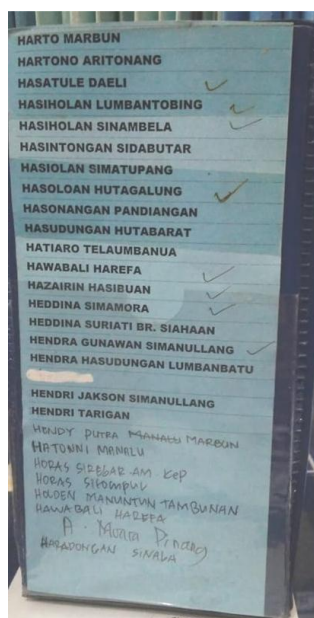 HARTO MARBUN
HARTONO ARITONANG
HASATULE DAELI
HASIHOLAN LUMBANTOBING
HASIHOLAN SINAMBELA
HASINTONGAN SIDABUTAR
HASIOLAN SIMATUPANG
HASOLOAN HUTAGALUNG
HASONANGAN PANDIANGAN
HASUDUNGAN HUTABARAT
HATIARO TELAUMBANUA
HAWABALI HAREFA
HAZAIRIN HASIBUAN
HEDDINA SIMAMORA
HEDDINA SURIATI BR. SIAHAAN
HENDRA GUNAWAN SIMANULLANG
HENDRA HASUDUNGAN LUMBANBATU
HENDRI JAKSON SIMANULLANG
HENDRI TARIGAN
HENDY PUTRA MANALU MARBUN
HATONNI MANALU
HORAS SIREGAR AM KEP
HORAS SITOMPUL
HOLDEN MANUNTUN TAMBUNAN
HAWABALI HAREFA
A. Muara Pinang
HARADONGAN